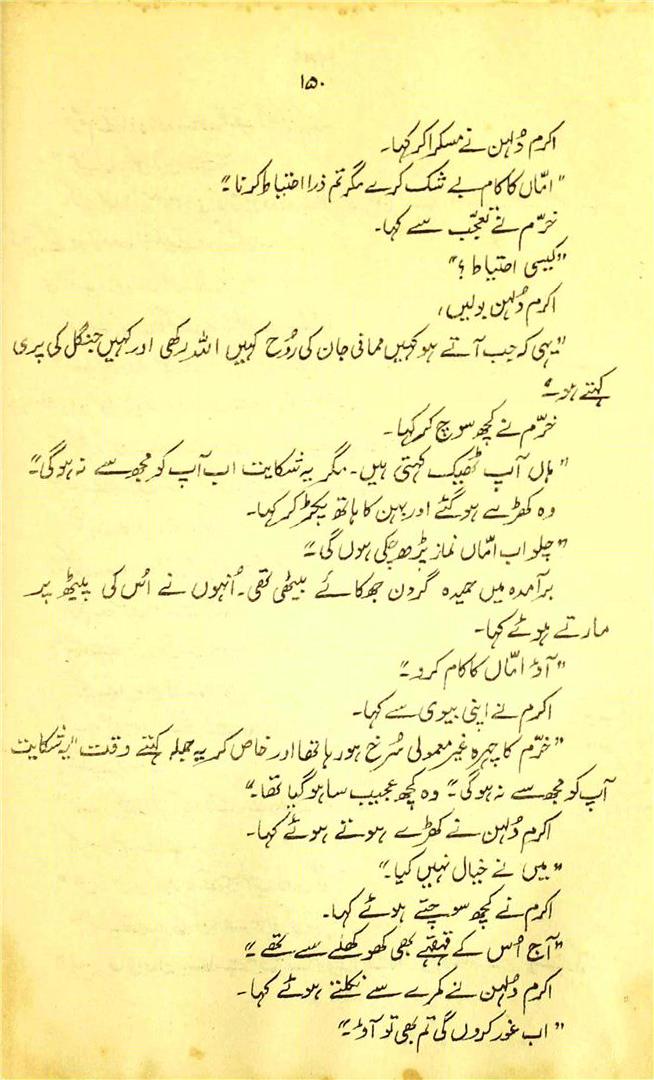 ۱۵۰
اکرم دُلہن نے مسکرا کر کہا۔
"امّاں کا کام بے شک کرے مگر تم ذرا احتیاط کرنا۔"
خرّم نے تعجّب سے کہا۔
"کیسی احتیاط؟"
اکرم دُلہن بولیں،
"یہی کہ جب آتے ہو کہیں ممانی جان کی رُوح کہیں اللہ رکھی اور کہیں جنگل کی پری
کہتے ہو۔"
خرّم نے کچھ سوچ کر کہا۔
"ہاں آپ ٹھیک کہتی ہیں۔ مگر یہ شکایت اب آپ کو مجھ سے نہ ہوگی۔"
وہ کھڑے ہو گئے اور بہن کا ہاتھ پکڑ کر کہا۔
"چلو اب امّاں نماز پڑھ چکی ہوں گی۔"
برآمدہ میں حمیدہ گردن جھکائے بیٹھی تھی۔ اُنہوں نے اُس کی پیٹھ پر
مارتے ہوئے کہا۔
"آؤ امّاں کا کام کرو۔"
اکرم نے اپنی بیوی سے کہا۔
"خرّم کا چہرہ غیر معمولی سُرخ ہو رہا تھا اور خاص کر یہ جملہ کہتے وقت "یہ شکایت
آپ کو مجھ سے نہ ہوگی۔" وہ کچھ عجیب سا ہو گیا تھا۔"
اکرم دُلہن نے کھڑے ہوتے ہوئے کہا۔
"میں نے خیال نہیں کیا۔"
اکرم نے کچھ سوچتے ہوئے کہا۔
"آج اُس کے قہقہے بھی کھوکھلے سے تھے۔"
اکرم دُلہن نے کمرے سے نکلتے ہوئے کہا۔
"اب غور کروں گی تم بھی تو آؤ۔"